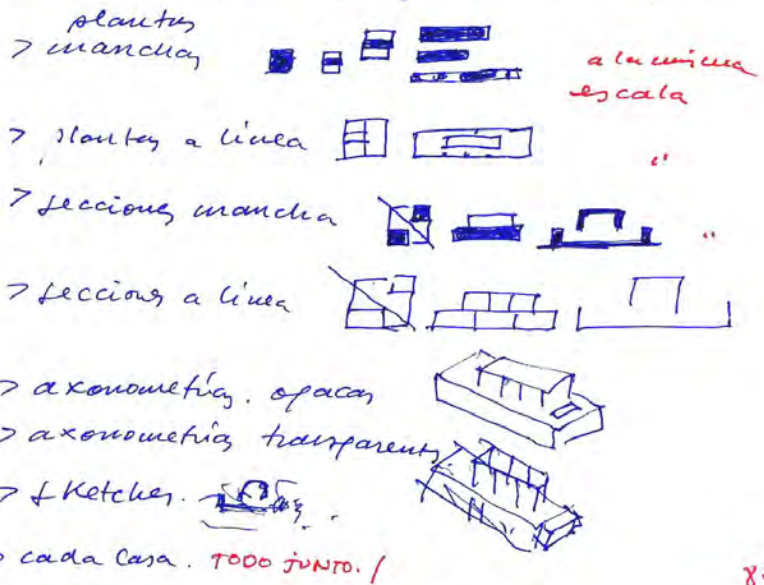 plantas
> manchas
a la misma
escala
> plantas a línea
"
> secciones mancha
"
> secciones a línea
> axonometrías. opacas
> axonometrías transparents
> sketches.
> cada casa. TODO JUNTO. /